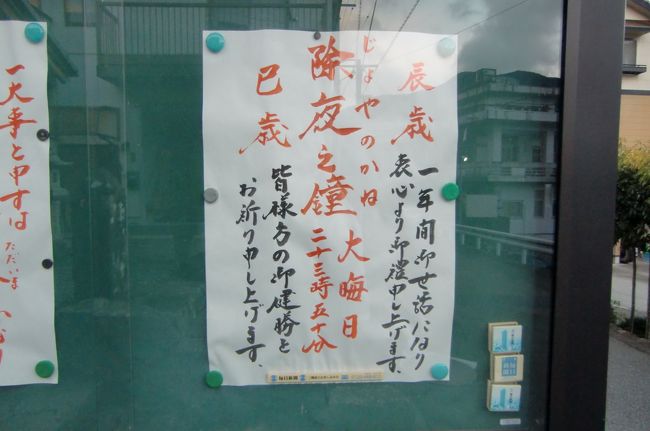 辰歳
一年間御世話になり
衷心より御禮申し上げます。
じょやのかね
除夜之鐘
大晦日
二十三時五十分
巳歳
皆様方の御健勝と
お祈り申し上げます。
一大事と申すは
ただいま
毎日新聞